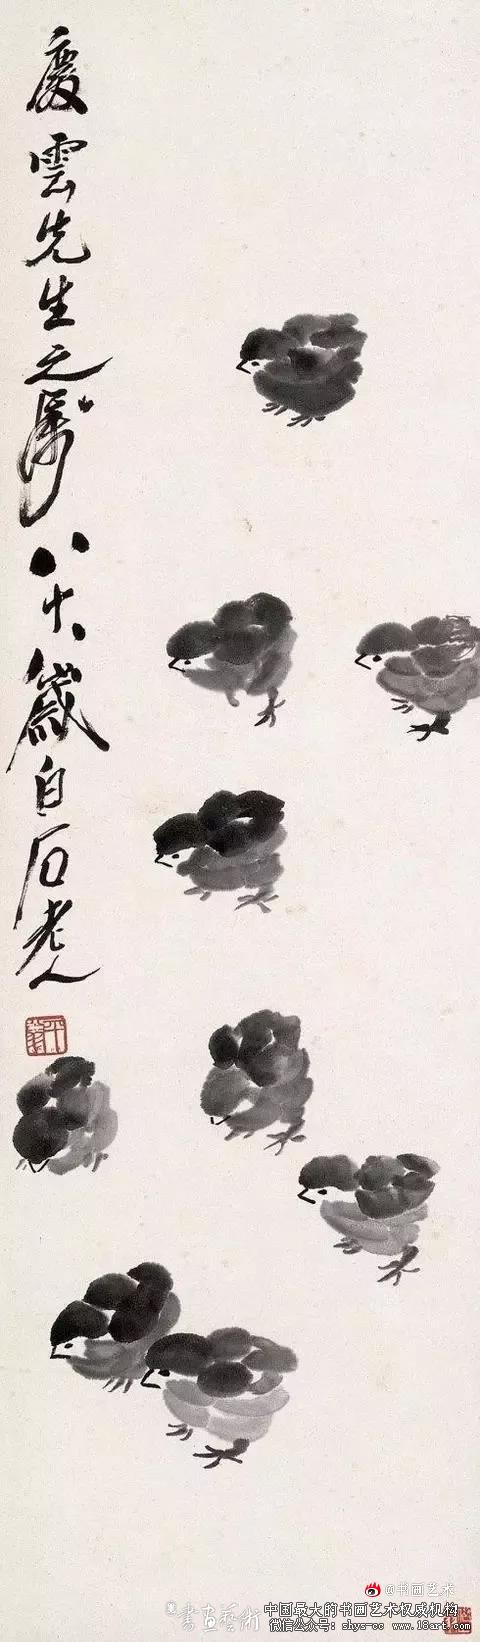 慶雲先生之屬八十八歲白石老人
@书画艺术
書画藝術
中国最大的书画艺术权威机构
微信公众号：shys-cc www.18art.com